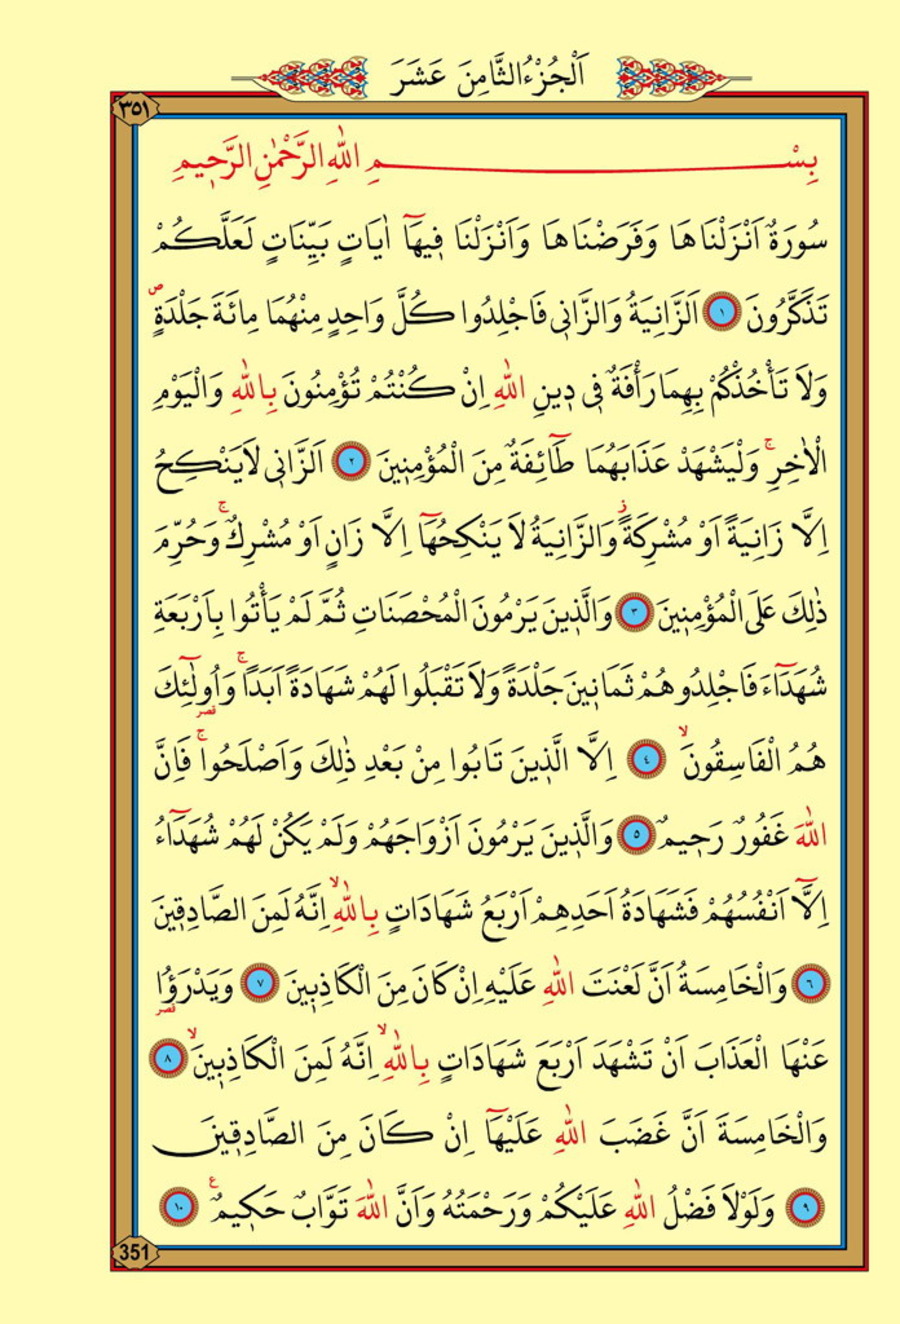 اَلْجُزْءُ الثَّامِنَ عَشَرَ
٣٥١
بِسْمِ اللّٰهِ الرَّحْمٰنِ الرَّحٖيمِ
سُورَةٌ اَنْزَلْنَاهَا وَفَرَضْنَاهَا وَاَنْزَلْنَا فٖيهَٓا اٰيَاتٍ بَيِّنَاتٍ لَعَلَّكُمْ
تَذَكَّرُونَ ١ اَلزَّانِيَةُ وَالزَّانٖى فَاجْلِدُوا كُلَّ وَاحِدٍ مِنْهُمَا مِائَةَ جَلْدَةٍۖ
وَلَا تَأْخُذْكُمْ بِهِمَا رَأْفَةٌ فٖى دٖينِ اللّٰهِ اِنْ كُنْتُمْ تُؤْمِنُونَ بِاللّٰهِ وَالْيَوْمِ
الْاٰخِرِۚ وَلْيَشْهَدْ عَذَابَهُمَا طَٓائِفَةٌ مِنَ الْمُؤْمِنٖينَ ٢ اَلزَّانٖى لَا يَنْكِحُ
اِلَّا زَانِيَةً اَوْ مُشْرِكَةًؗ وَالزَّانِيَةُ لَا يَنْكِحُهَٓا اِلَّا زَانٍ اَوْ مُشْرِكٌۚ وَحُرِّمَ
ذٰلِكَ عَلَى الْمُؤْمِنٖينَ ٣ وَالَّذٖينَ يَرْمُونَ الْمُحْصَنَاتِ ثُمَّ لَمْ يَأْتُوا بِاَرْبَعَةِ
شُهَدَٓاءَ فَاجْلِدُوهُمْ ثَمَانٖينَ جَلْدَةً وَلَا تَقْبَلُوا لَهُمْ شَهَادَةً اَبَدًاۚ وَاُو۬لٰٓئِكَ
هُمُ الْفَاسِقُونَۙ ٤ اِلَّا الَّذٖينَ تَابُوا مِنْ بَعْدِ ذٰلِكَ وَاَصْلَحُواۚ فَاِنَّ
اللّٰهَ غَفُورٌ رَحٖيمٌ ٥ وَالَّذٖينَ يَرْمُونَ اَزْوَاجَهُمْ وَلَمْ يَكُنْ لَهُمْ شُهَدَٓاءُ
اِلَّٓا اَنْفُسُهُمْ فَشَهَادَةُ اَحَدِهِمْ اَرْبَعُ شَهَادَاتٍ بِاللّٰهِۙ اِنَّهُ لَمِنَ الصَّادِقٖينَ
٦ وَالْخَامِسَةُ اَنَّ لَعْنَتَ اللّٰهِ عَلَيْهِ اِنْ كَانَ مِنَ الْكَاذِبٖينَ ٧ وَيَدْرَؤُ۬ا
عَنْهَا الْعَذَابَ اَنْ تَشْهَدَ اَرْبَعَ شَهَادَاتٍ بِاللّٰهِۙ اِنَّهُ لَمِنَ الْكَاذِبٖينَۙ ٨
وَالْخَامِسَةَ اَنَّ غَضَبَ اللّٰهِ عَلَيْهَٓا اِنْ كَانَ مِنَ الصَّادِقٖينَ
٩ وَلَوْلَا فَضْلُ اللّٰهِ عَلَيْكُمْ وَرَحْمَتُهُ وَاَنَّ اللّٰهَ تَوَّابٌ حَكٖيمٌ ١٠
351